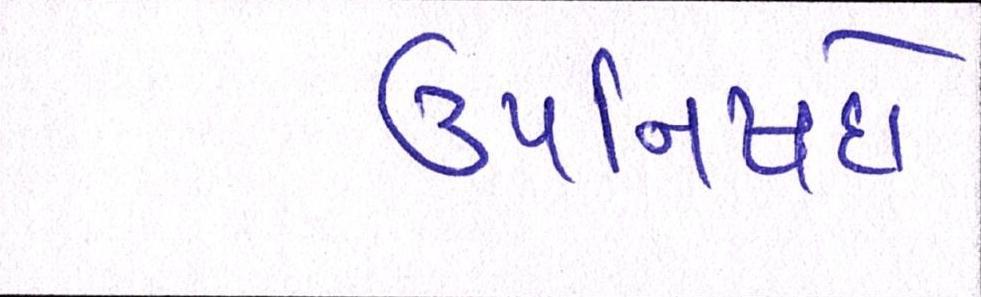 ઉપનિષદો